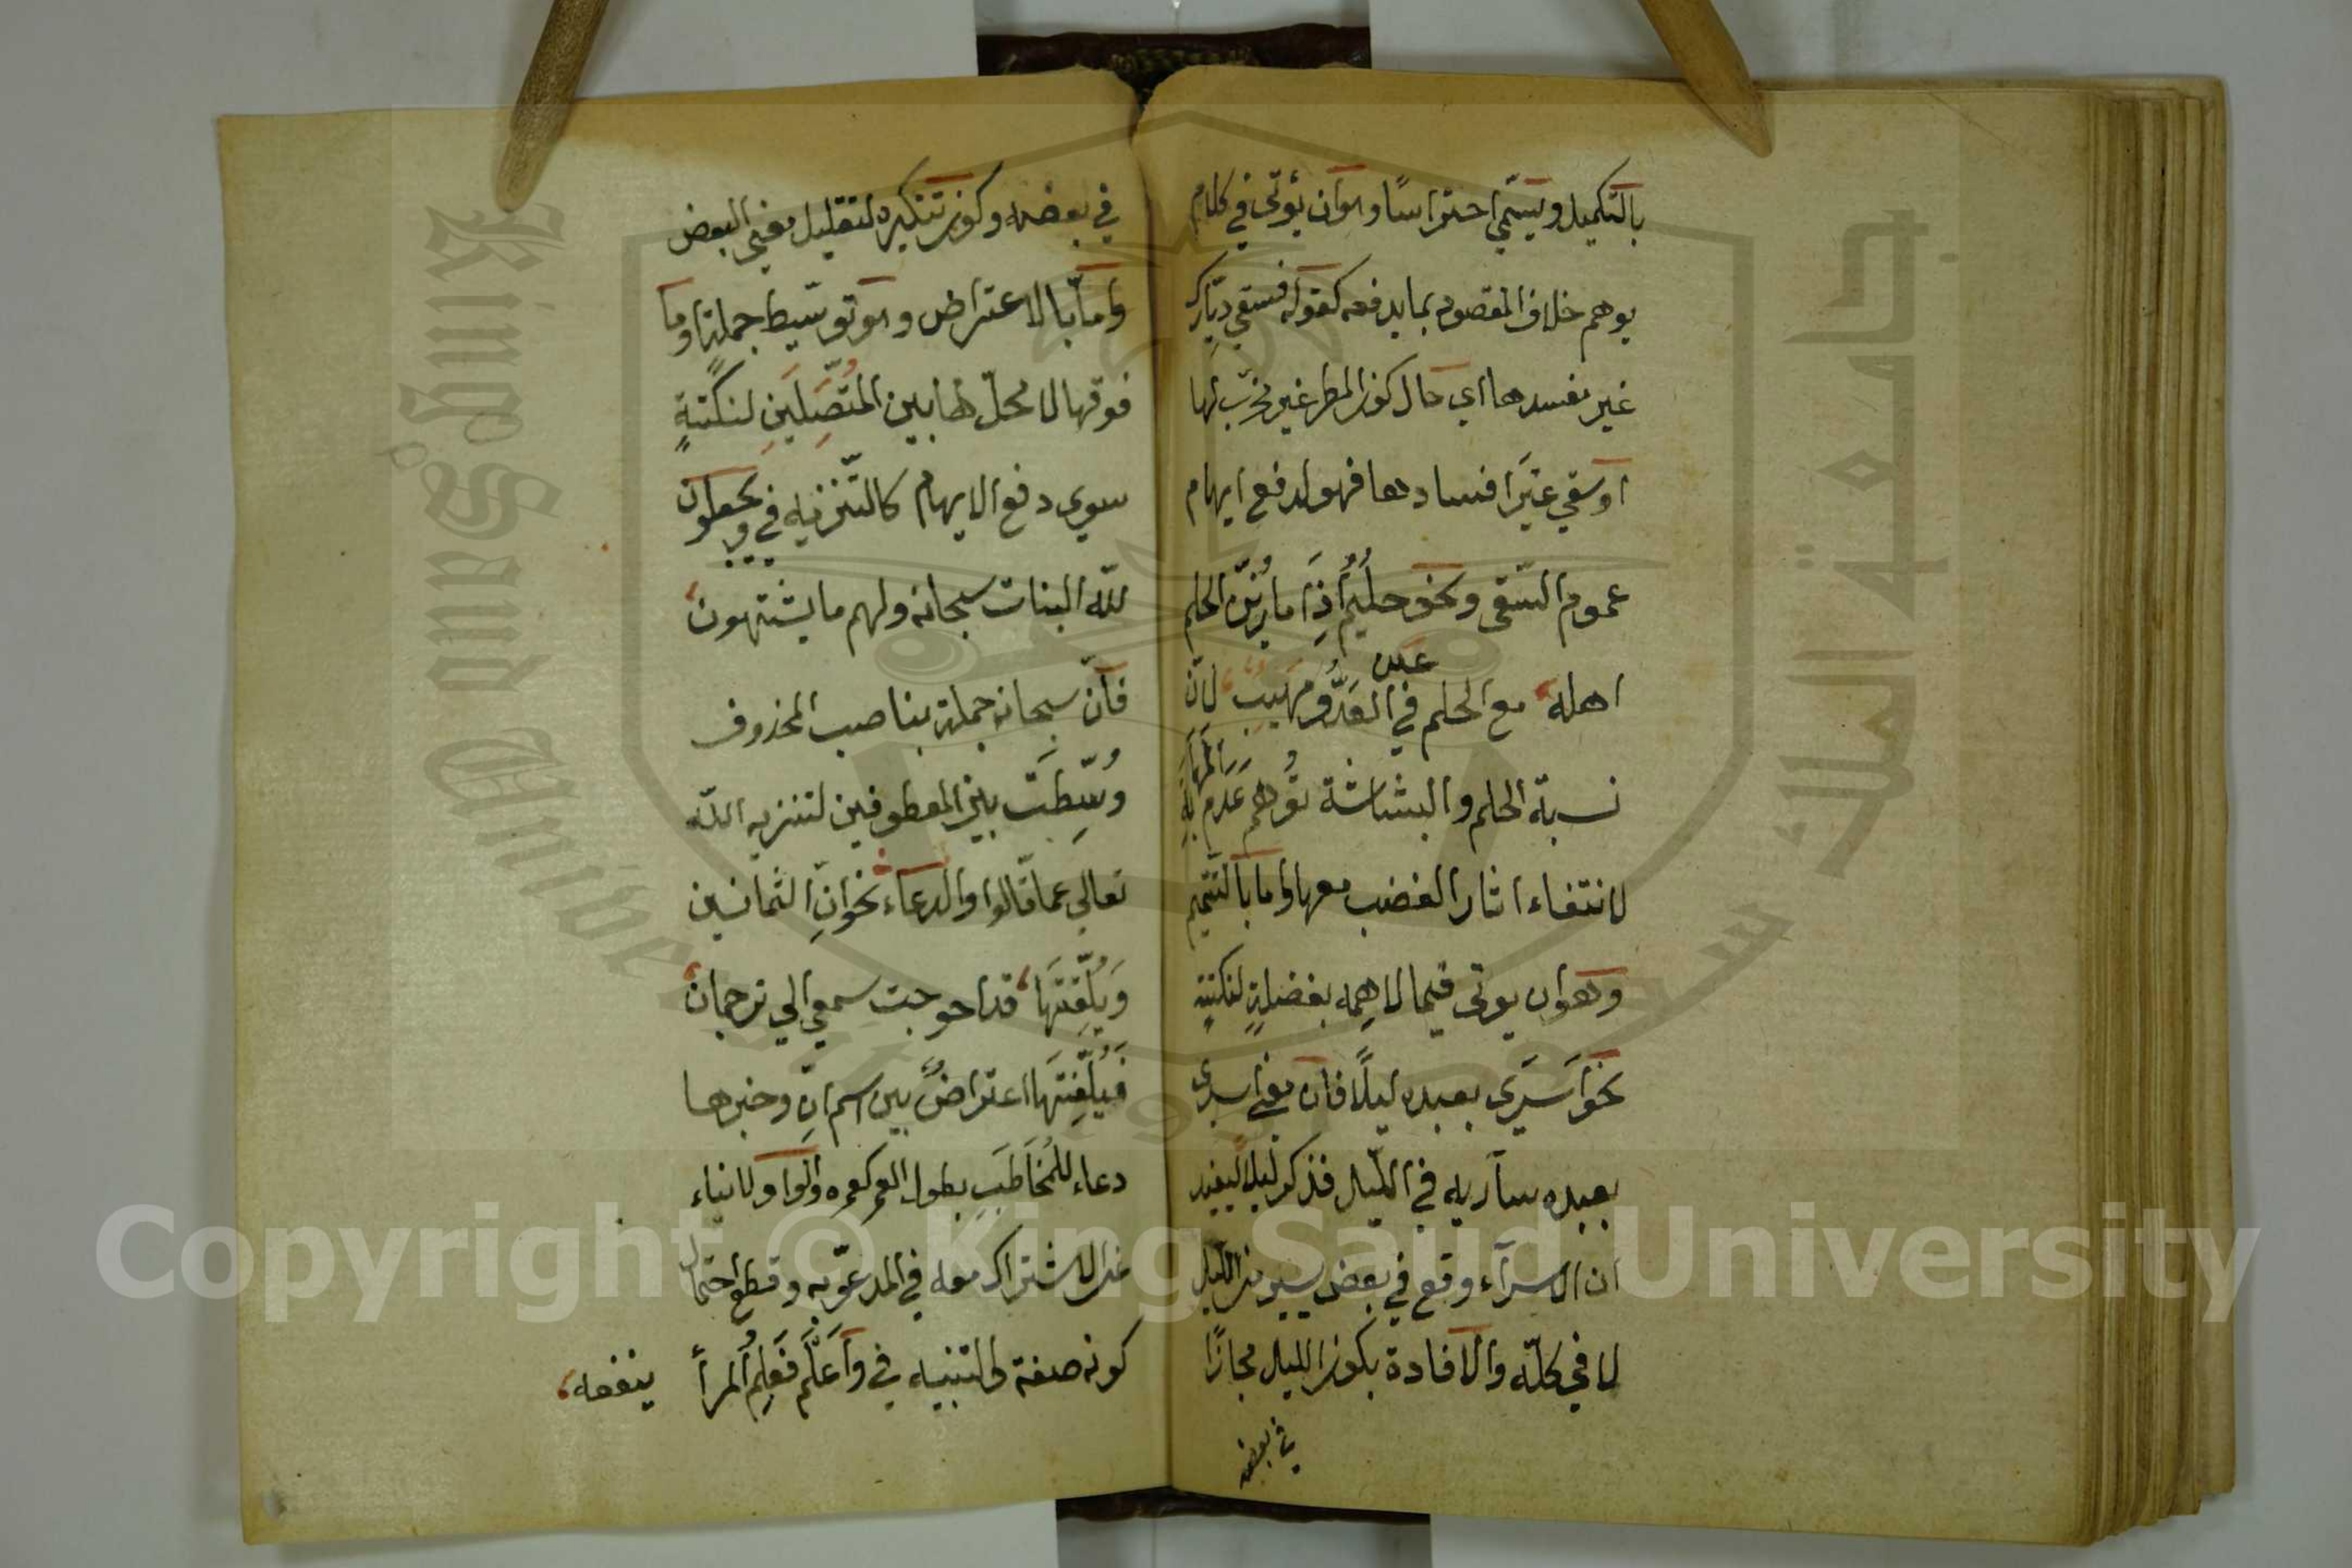 بالتكميل ويسمّى احتراسًا وهو ان يؤتى في كلام
يوهم خلاف المقصود بما يدفعه كقوله فسقى ديارك
غير مفسدها اي حال كون المطر غير مخرّب لها
او سقي غيرَ افسادها فهو لدفع ايهام
عموم السّقي ونحو حليمٌ اذا ما زيّن الحلم
اهله مع الحلم في عين العدوّ مهيب لانّ
نسبة الحلم والبشاشة توهم عدم المهابة
لانتفاء اثار الغضب معها واما بالتتميم
وهو ان يوتى فيما لا يوهمه بفضلةٍ لنكتةٍ
نحو اسرى بعبده ليلًا فان معنى اسرى
بعبده سار به في الليل فذكر ليلًا ليفيد
ان الاسراء وقع في بعض سير من الليل
لا في كلّه والافادة بكون الليل مجازًا
في بعضه
في بعضه وكون تنكيره لتقليل معنى البعض
وامّا بالاعتراض وهو توسّيط جملة او ما
فوقها لا محلّ لها بين المتّصلين لنكتةٍ
سوى دفع الايهام كالتّنزيه في ويجعلون
للّه البنات سبحانه ولهم ما يشتهون
فانّ سبحانه جملة بناصب المحذوف
وُسّطت بين المعطوفين لتنزيه اللّه
تعالى عما قالوا والدعاء نحو انّ الثمانين
وبُلّغتَها قد احوجت سمعي الى ترجمان
فبُلّغتَها اعتراضٌ بين اسم انّ وخبرها
دعاء للمُخاطَب بطول العمر كعمره والواو لانباء
عن الاشتراك معه في المدعوّ به وقطع احتمال
كونه صفة والتنبيه في واعلم فعلم المرأ ينفعه
Copyright © King Saud University
King Saud University
جامعة الملك سعود
1957